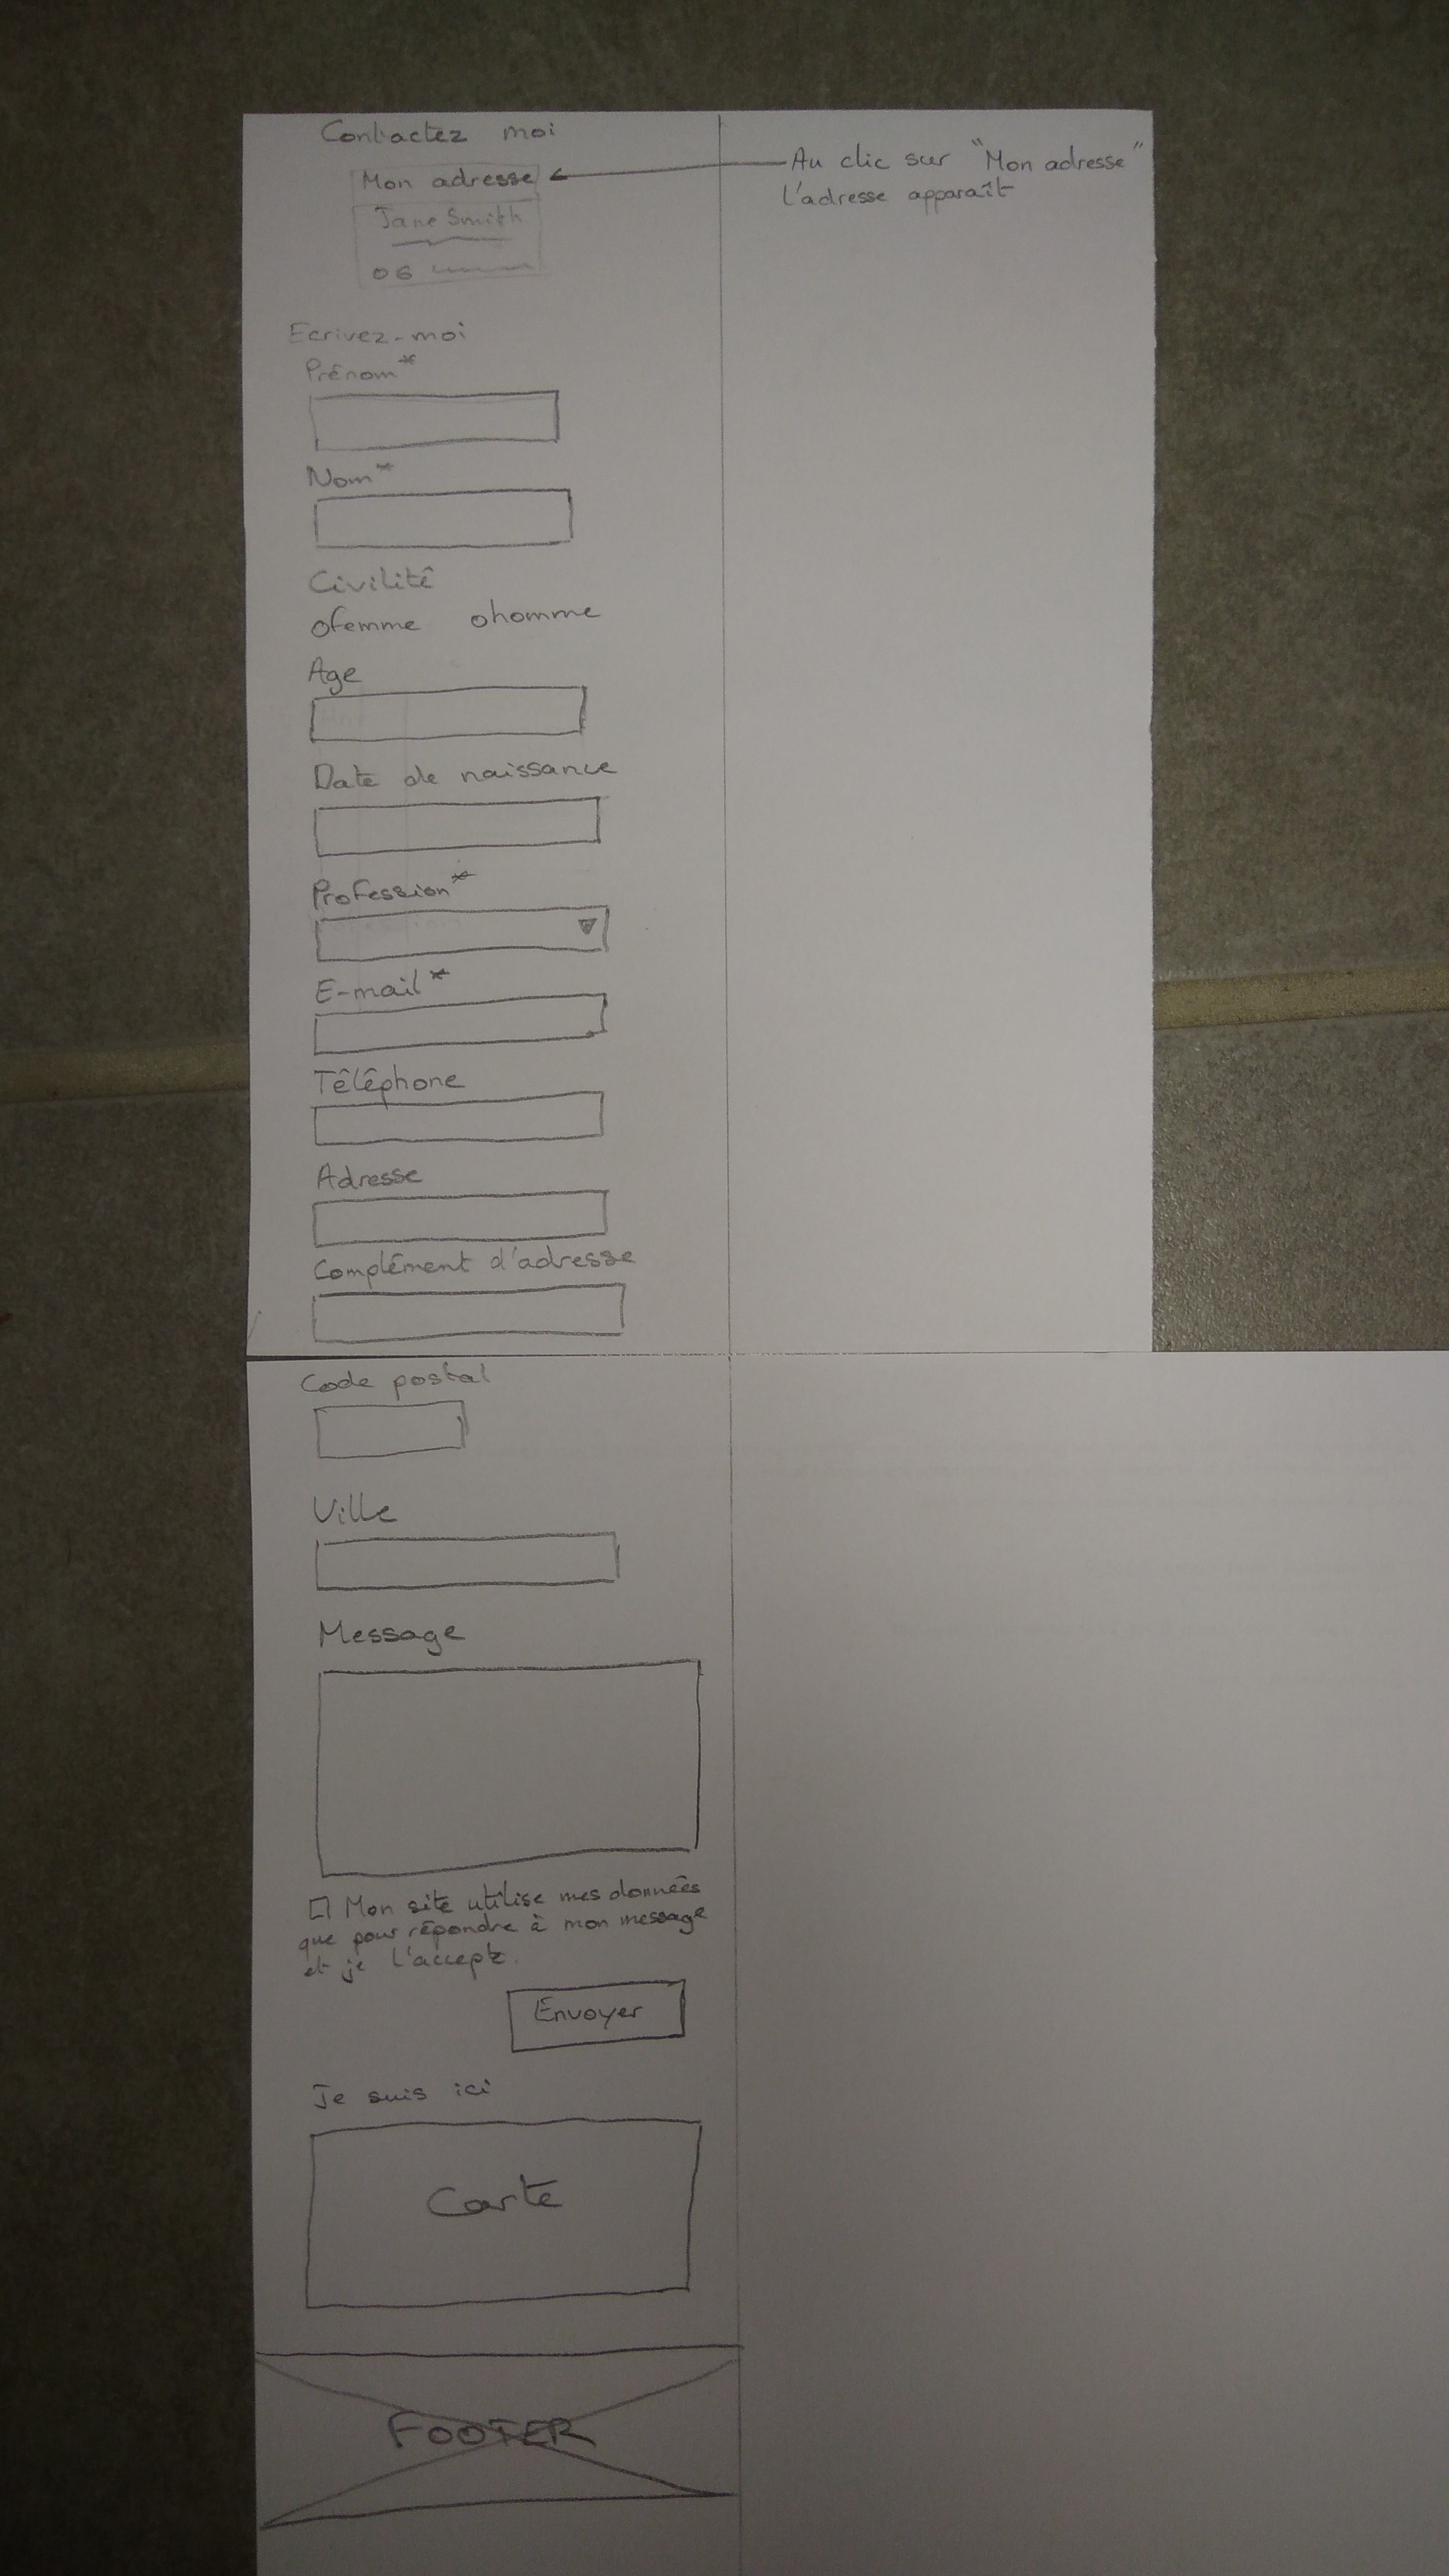 Contactez moi
Mon adresse
Au clic sur "Mon adresse"
l'adresse apparaît
Jane Smith
06
Ecrivez-moi
Prénom*
Nom*
Civilité
femme homme
Age
Date de naissance
Profession*
E-mail*
Téléphone
Adresse
Complément d'adresse
Code postal
Ville
Message
Mon site utilise mes données
que pour répondre à mon message
et je l'accepte.
Envoyer
Je suis ici
Carte
FOOTER